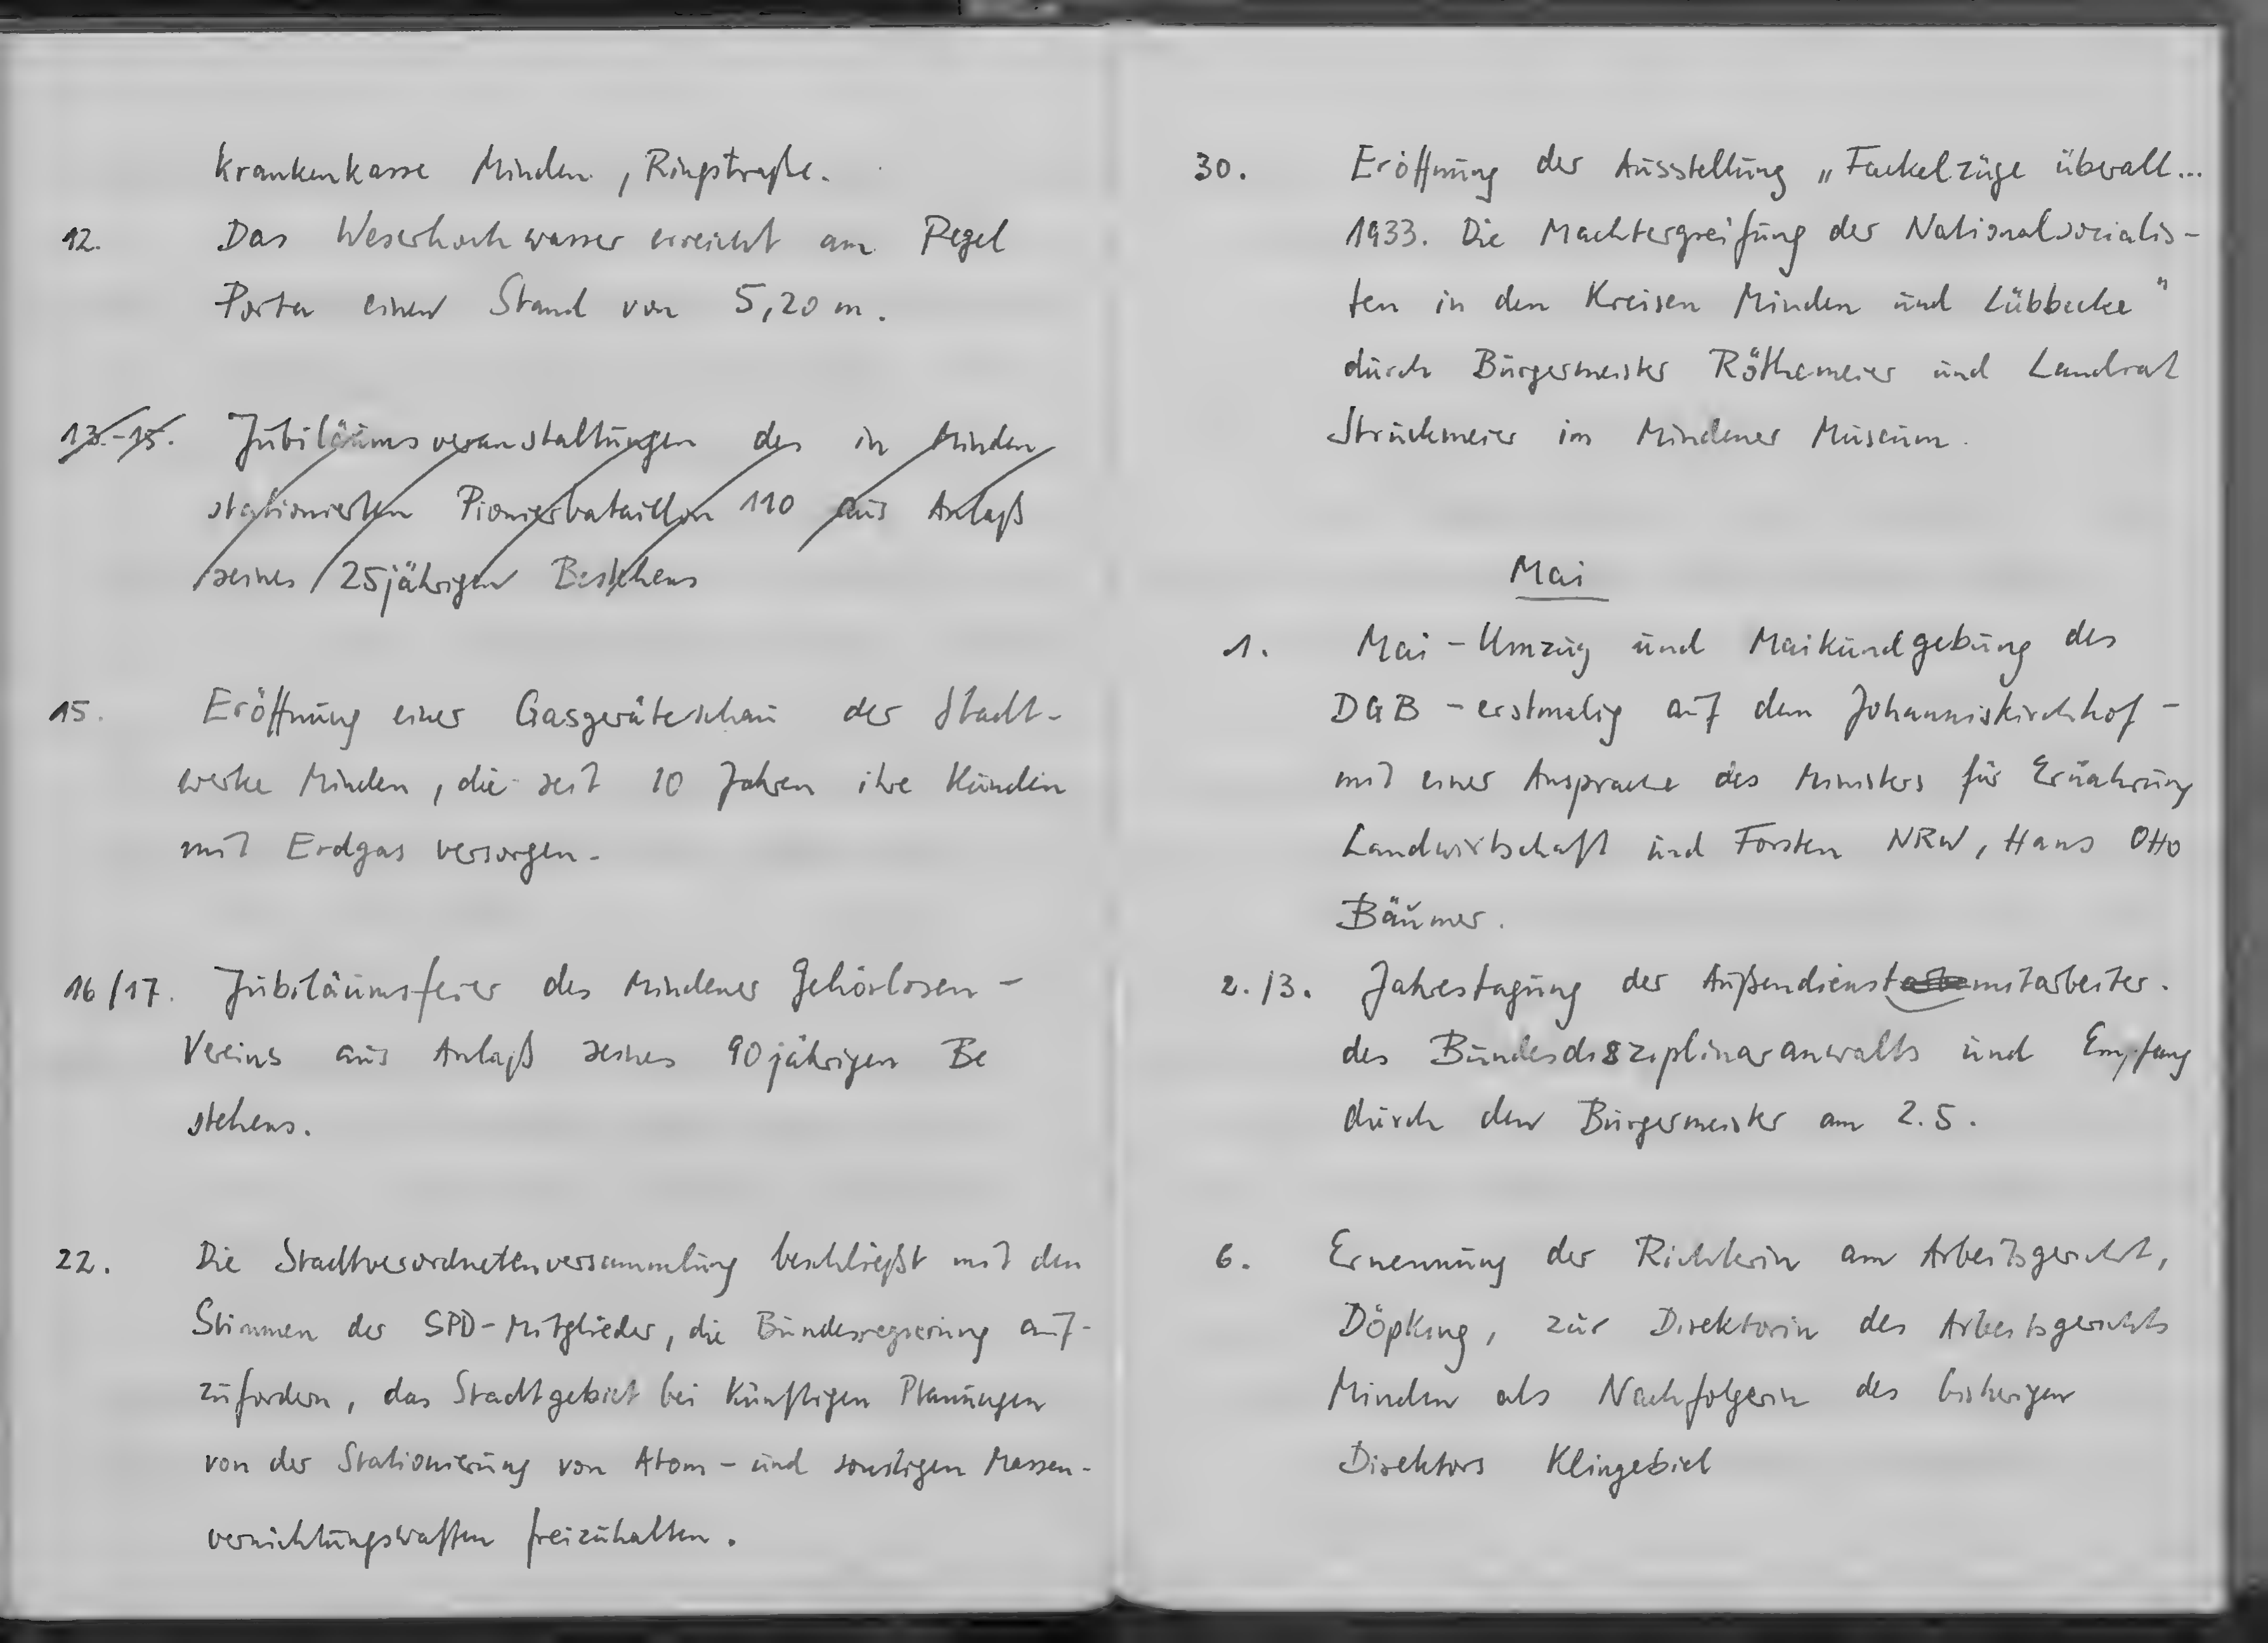 Krankenkasse Minden, Ringstraße.
12. Das Weserhochwasser erreicht am Pegel
Porta einen Stand von 5,20 m.
13.-15. Jubiläumsveranstaltungen des in Minden
stationierten Pionierbataillon 110 aus Anlaß
seines 25jährigen Bestehens
15. Eröffnung einer Gasgeräteschau der Stadt-
werke Minden, die seit 10 Jahren ihre Kunden
mit Erdgas versorgen.
16/17. Jubiläumsfeier des Mindener Gehörlosen-
Vereins aus Anlaß seines 90jährigen Be
stehens.
22. Die Stadtverordnetenversammlung beschließt mit den
Stimmen der SPD-Mitglieder, die Bundesregierung auf-
zufordern, das Stadtgebiet bei künftigen Planungen
von der Stationierung von Atom- und sonstigen Massen-
vernichtungswaffen freizuhalten.
30. Eröffnung der Ausstellung „Fackelzüge überall...
1933. Die Machtergreifung der Nationalsozialis-
ten in den Kreisen Minden und Lübbecke"
durch Bürgermeister Röthemeier und Landrat
Struckmeier im Mindener Museum.
Mai
1. Mai-Umzug und Maikundgebung des
DGB - erstmalig auf dem Johanniskirchhof -
mit einer Ansprache des Ministers für Ernährung
Landwirtschaft und Forsten NRW, Hans Otto
Bäumer.
2./3. Jahrestagung der Außendienstmitarbeiter.
des Bundesdisziplinaranwalts und Empfang
durch den Bürgermeister am 2.5.
6. Ernennung der Richterin am Arbeitsgericht,
Döpking, zur Direktorin des Arbeitsgerichts
Minden als Nachfolgerin des bisherigen
Direktors Klingebiel